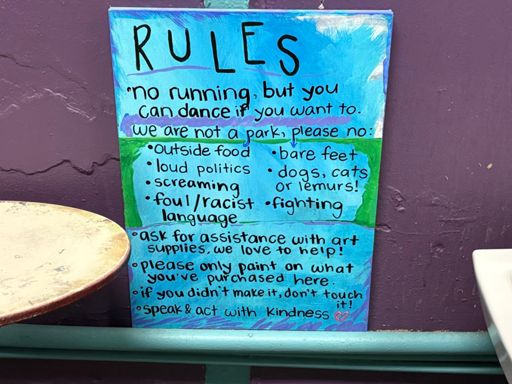 RULES
•no running, but you
can dance if you want to.
we are not a park, please no:
•outside food
•loud politics
•screaming
•foul/racist
language
•bare feet
•dogs, cats
or lemurs!
•fighting
•ask for assistance with art
supplies, we love to help!
•please only paint on what
you've purchased here.
•if you didn't make it, don't touch
it!
•speak & act with kindness